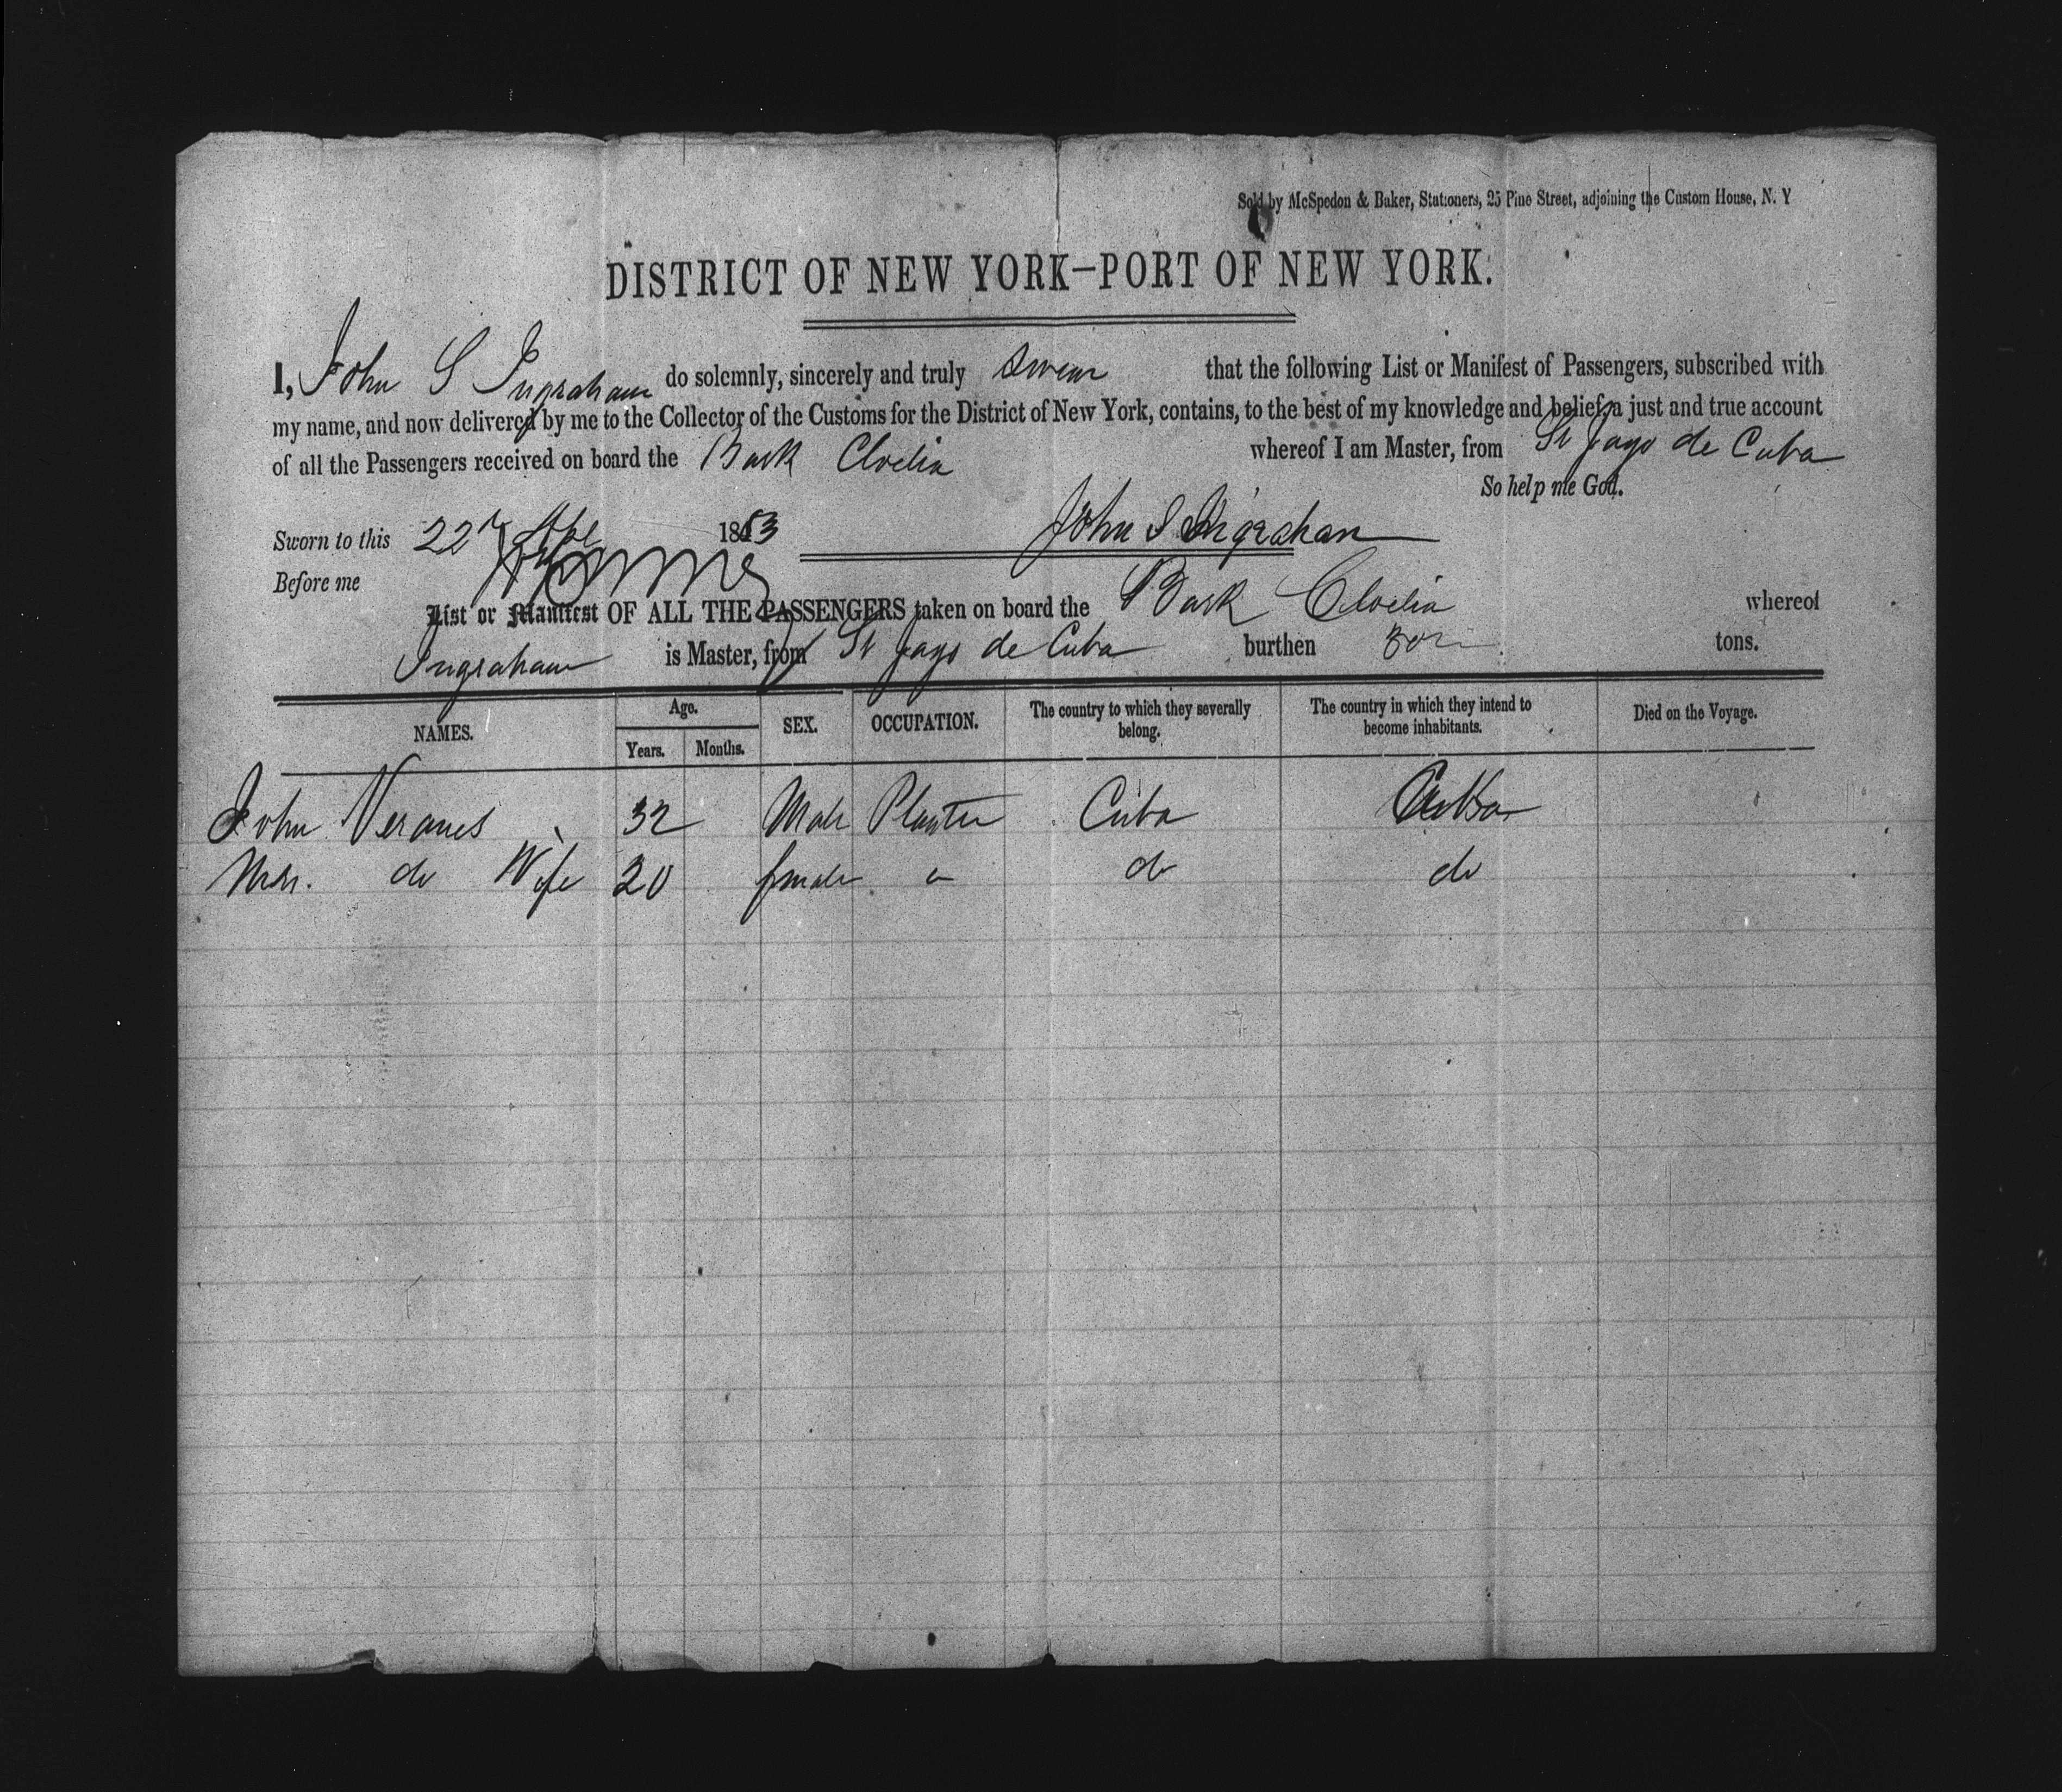 Sold by McSpedon & Baker, Stationers, 25 Pine Street, adjoining the Custom House, N. Y
DISTRICT OF NEW YORK—PORT OF NEW YORK.
I, John S Ingraham do solemnly, sincerely and truly swear that the following List or Manifest of Passengers, subscribed with
my name, and now delivered by me to the Collector of the Customs for the District of New York, contains, to the best of my knowledge and belief, a just and true account
of all the Passengers received on board the Bark Cloelia whereof I am Master, from St Jago de Cuba
So help me God.
Sworn to this 22 Ape 1853 John S Ingraham
Before me
List or Manifest OF ALL THE PASSENGERS taken on board the Bark Cloelia whereof
Ingraham is Master, from St Jago de Cuba burthen tons.
NAMES. Age. Years. Months. SEX. OCCUPATION. The country to which they severally belong. The country in which they intend to become inhabitants. Died on the Voyage.
John Veranes 32 Male Planter Cuba Cuba
Mrs. do Wife 20 female do do